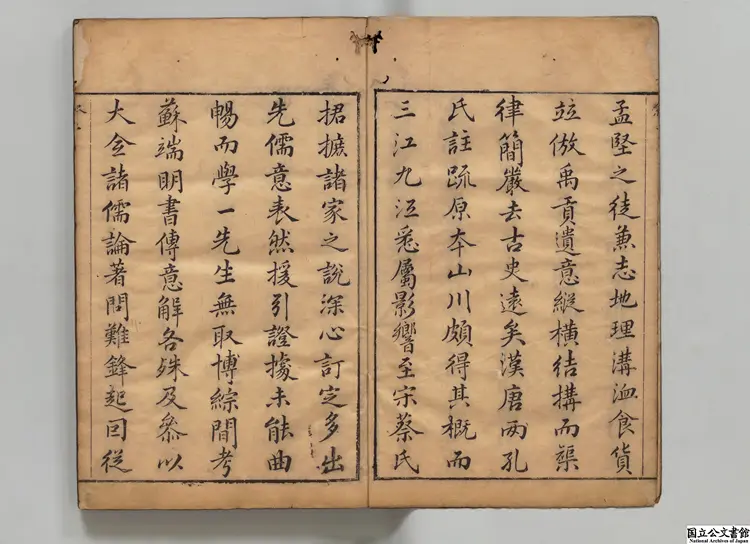 孟堅之徒兼志地理溝洫食貨
竝倣禹貢遺意縱橫結搆而榘
律簡嚴去古史遠矣漢唐兩孔
氏註疏原本山川頗得其概而
三江九江悉屬影響至宋蔡氏
捃摭諸家之說深心訂定多出
先儒意表然援引證據未能曲
暢而學一先生無取博綜間考
蘇端明書傳意解各殊及叅以
大全諸儒論著問難鋒起因從
国立公文書館
National Archives of Japan